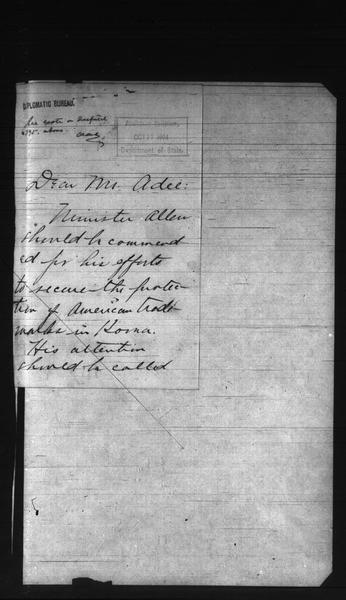 DIPLOMATIC BUREAU
See note on despatch
above.
OCT 1904
Department of State.
Dear Mr. Adee:
Minister Allen
should be commend
ed for his efforts
to secure the protec-
tion of American trade
marks in Korea.
His attention
should be called